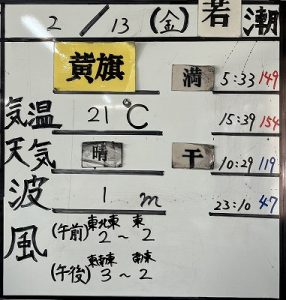 2/13(金)若潮
黄旗 満 5:33 149
気温 21℃ 15:39 154
天気 晴 干 10:29 119
波 1m 23:10 47
風 (午前) 東北東 2~東 2
(午後) 東南東 3~南東 2